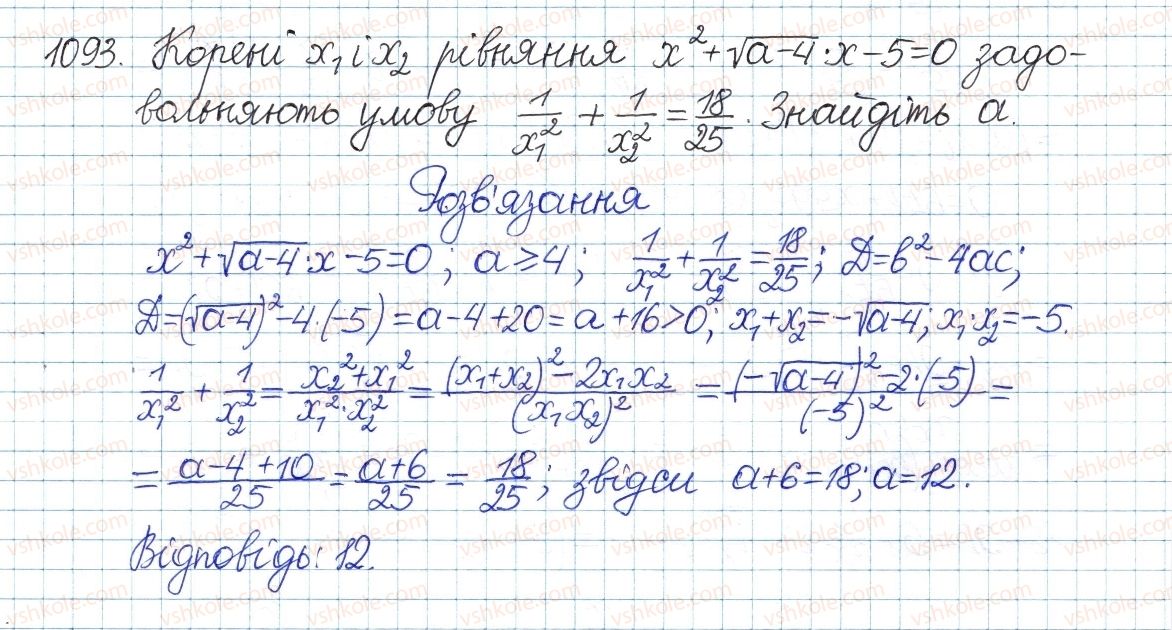 1093. Корені x₁ і x₂ рівняння x² + √(a-4) · x - 5 = 0 задо-
вольняють умову 1/x₁² + 1/x₂² = 18/25. Знайдіть a.
Розв'язання
x² + √(a-4) · x - 5 = 0; a ≥ 4; 1/x₁² + 1/x₂² = 18/25; D = b² - 4ac;
D = (√(a-4))² - 4 · (-5) = a - 4 + 20 = a + 16 > 0; x₁ + x₂ = -√(a-4); x₁ · x₂ = -5.
1/x₁² + 1/x₂² = (x₂² + x₁²)/(x₁² · x₂²) = ((x₁ + x₂)² - 2x₁x₂)/(x₁x₂)² = ((-√(a-4))² - 2 · (-5))/(-5)² =
= (a - 4 + 10)/25 = (a + 6)/25 = 18/25; звідси a + 6 = 18; a = 12.
Відповідь: 12.